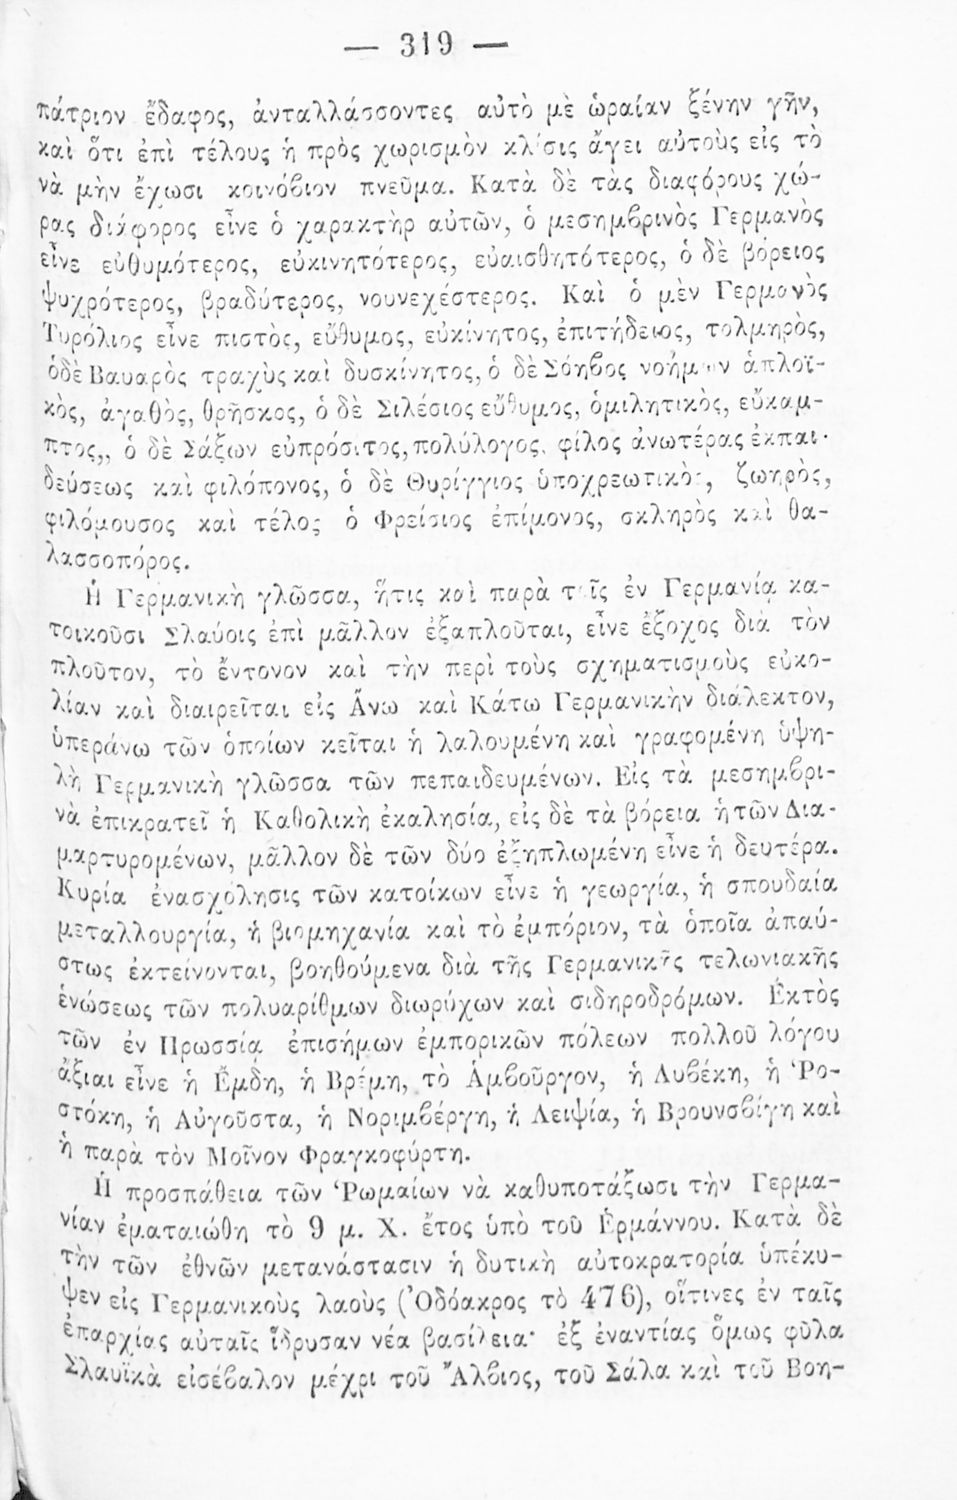 — 319 —
πάτριον ἔδαφος, ἀνταλλάσσοντες αὐτὸ μὲ ὡραίαν ξένην γῆν,
καὶ ὅτι ἐπὶ τέλους ἡ πρὸς χωρισμὸν κλίσις ἄγει αὐτοὺς εἰς τὸ
νὰ μὴν ἔχωσι κοινόβιον πνεῦμα. Κατὰ δὲ τὰς διαφόρους χώ-
ρας διάφορος εἶνε ὁ χαρακτὴρ αὐτῶν, ὁ μεσημβρινὸς Γερμανὸς
εἶνε εὐθυμότερος, εὐκινητότερος, εὐαισθητότερος, ὁ δὲ βόρειος
ψυχρότερος, βραδύτερος, νουνεχέστερος. Καὶ ὁ μὲν Γερμανὸς
Τυρόλιος εἶνε πιστὸς, εὔθυμος, εὐκίνητος, ἐπιτήδειος, τολμηρὸς,
ὁδὲ Βαυαρὸς τραχὺς καὶ δυσκίνητος, ὁ δὲ Σόηβος νοήμων ἁπλοϊ-
κὸς, ἀγαθὸς, θρῆσκος, ὁ δὲ Σιλέσιος εὔθυμος, ὁμιλητικὸς, εὔκαμ-
πτος,, ὁ δὲ Σάξων εὐπρόσιτος, πολύλογος, φίλος ἀνωτέρας ἐκπαι-
δεύσεως καὶ φιλόπονος, ὁ δὲ Θυρίγγιος ὑποχρεωτικὸς, ζωηρὸς,
φιλόμουσος καὶ τέλος ὁ Φρείσιος ἐπίμονος, σκληρὸς καὶ θα-
λασσοπόρος.
Ἡ Γερμανικὴ γλῶσσα, ἥτις καὶ παρὰ τοῖς ἐν Γερμανίᾳ κα-
τοικοῦσι Σλαύοις ἐπὶ μᾶλλον ἐξαπλοῦται, εἶνε ἔξοχος διὰ τὸν
πλοῦτον, τὸ ἔντονον καὶ τὴν περὶ τοὺς σχηματισμοὺς εὐκο-
λίαν καὶ διαιρεῖται εἰς Ἄνω καὶ Κάτω Γερμανικὴν διάλεκτον,
ὑπεράνω τῶν ὁποίων κεῖται ἡ λαλουμένη καὶ γραφομένη ὑψη-
λὴ Γερμανικὴ γλῶσσα τῶν πεπαιδευμένων. Εἰς τὰ μεσημβρι-
νὰ ἐπικρατεῖ ἡ Καθολικὴ ἐκαλησία, εἰς δὲ τὰ βόρεια ἡ τῶν Δια-
μαρτυρομένων, μᾶλλον δὲ τῶν δύο ἐξηπλωμένη εἶνε ἡ δευτέρα.
Κυρία ἐνασχόλησις τῶν κατοίκων εἶνε ἡ γεωργία, ἡ σπουδαία
μεταλλουργία, ἡ βιομηχανία καὶ τὸ ἐμπόριον, τὰ ὁποῖα ἀπαύ-
στως ἐκτείνονται, βοηθούμενα διὰ τῆς Γερμανικῆς τελωνιακῆς
ἑνώσεως τῶν πολυαρίθμων διωρύχων καὶ σιδηροδρόμων. Ἐκτὸς
τῶν ἐν Πρωσσίᾳ ἐπισήμων ἐμπορικῶν πόλεων πολλοῦ λόγου
ἄξιαι εἶνε ἡ Ἔμδη, ἡ Βρέμη, τὸ Ἁμβοῦργον, ἡ Λυβέκη, ἡ Ῥο-
στόκη, ἡ Αὐγοῦστα, ἡ Νοριμβέργη, ἡ Λειψία, ἡ Βρουνσβίγη καὶ
ἡ παρὰ τὸν Μοῖνον Φραγκοφύρτη.
Ἡ προσπάθεια τῶν Ῥωμαίων νὰ καθυποτάξωσι τὴν Γερμα-
νίαν ἐματαιώθη τὸ 9 μ. Χ. ἔτος ὑπὸ τοῦ Ἑρμάννου. Κατὰ δὲ
τὴν τῶν ἐθνῶν μετανάστασιν ἡ δυτικὴ αὐτοκρατορία ὑπέκυ-
ψεν εἰς Γερμανικοὺς λαοὺς (Ὀδόακρος τὸ 476), οἵτινες ἐν ταῖς
ἐπαρχίας αὐταῖς ἵδρυσαν νέα βασίλεια· ἐξ ἐναντίας ὅμως φῦλα
Σλαυϊκὰ εἰσέβαλον μέχρι τοῦ Ἄλβιος, τοῦ Σάλα καὶ τοῦ Βοη-